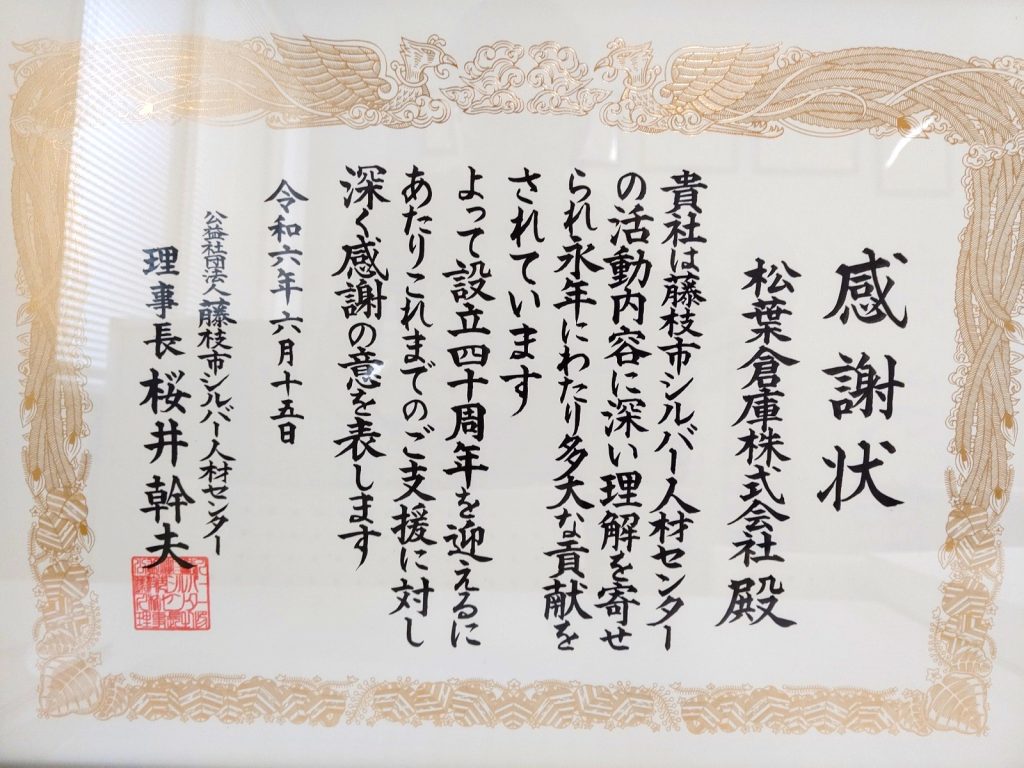 感謝状
松葉倉庫株式会社 殿
貴社は藤枝市シルバー人材センター
の活動内容に深い理解を寄せ
られ永年にわたり多大な貢献を
されています
よって設立四十周年を迎えるに
あたりこれまでのご支援に対し
深く感謝の意を表します
令和六年六月十五日
公益社団法人藤枝市シルバー人材センター
理事長 桜井幹夫